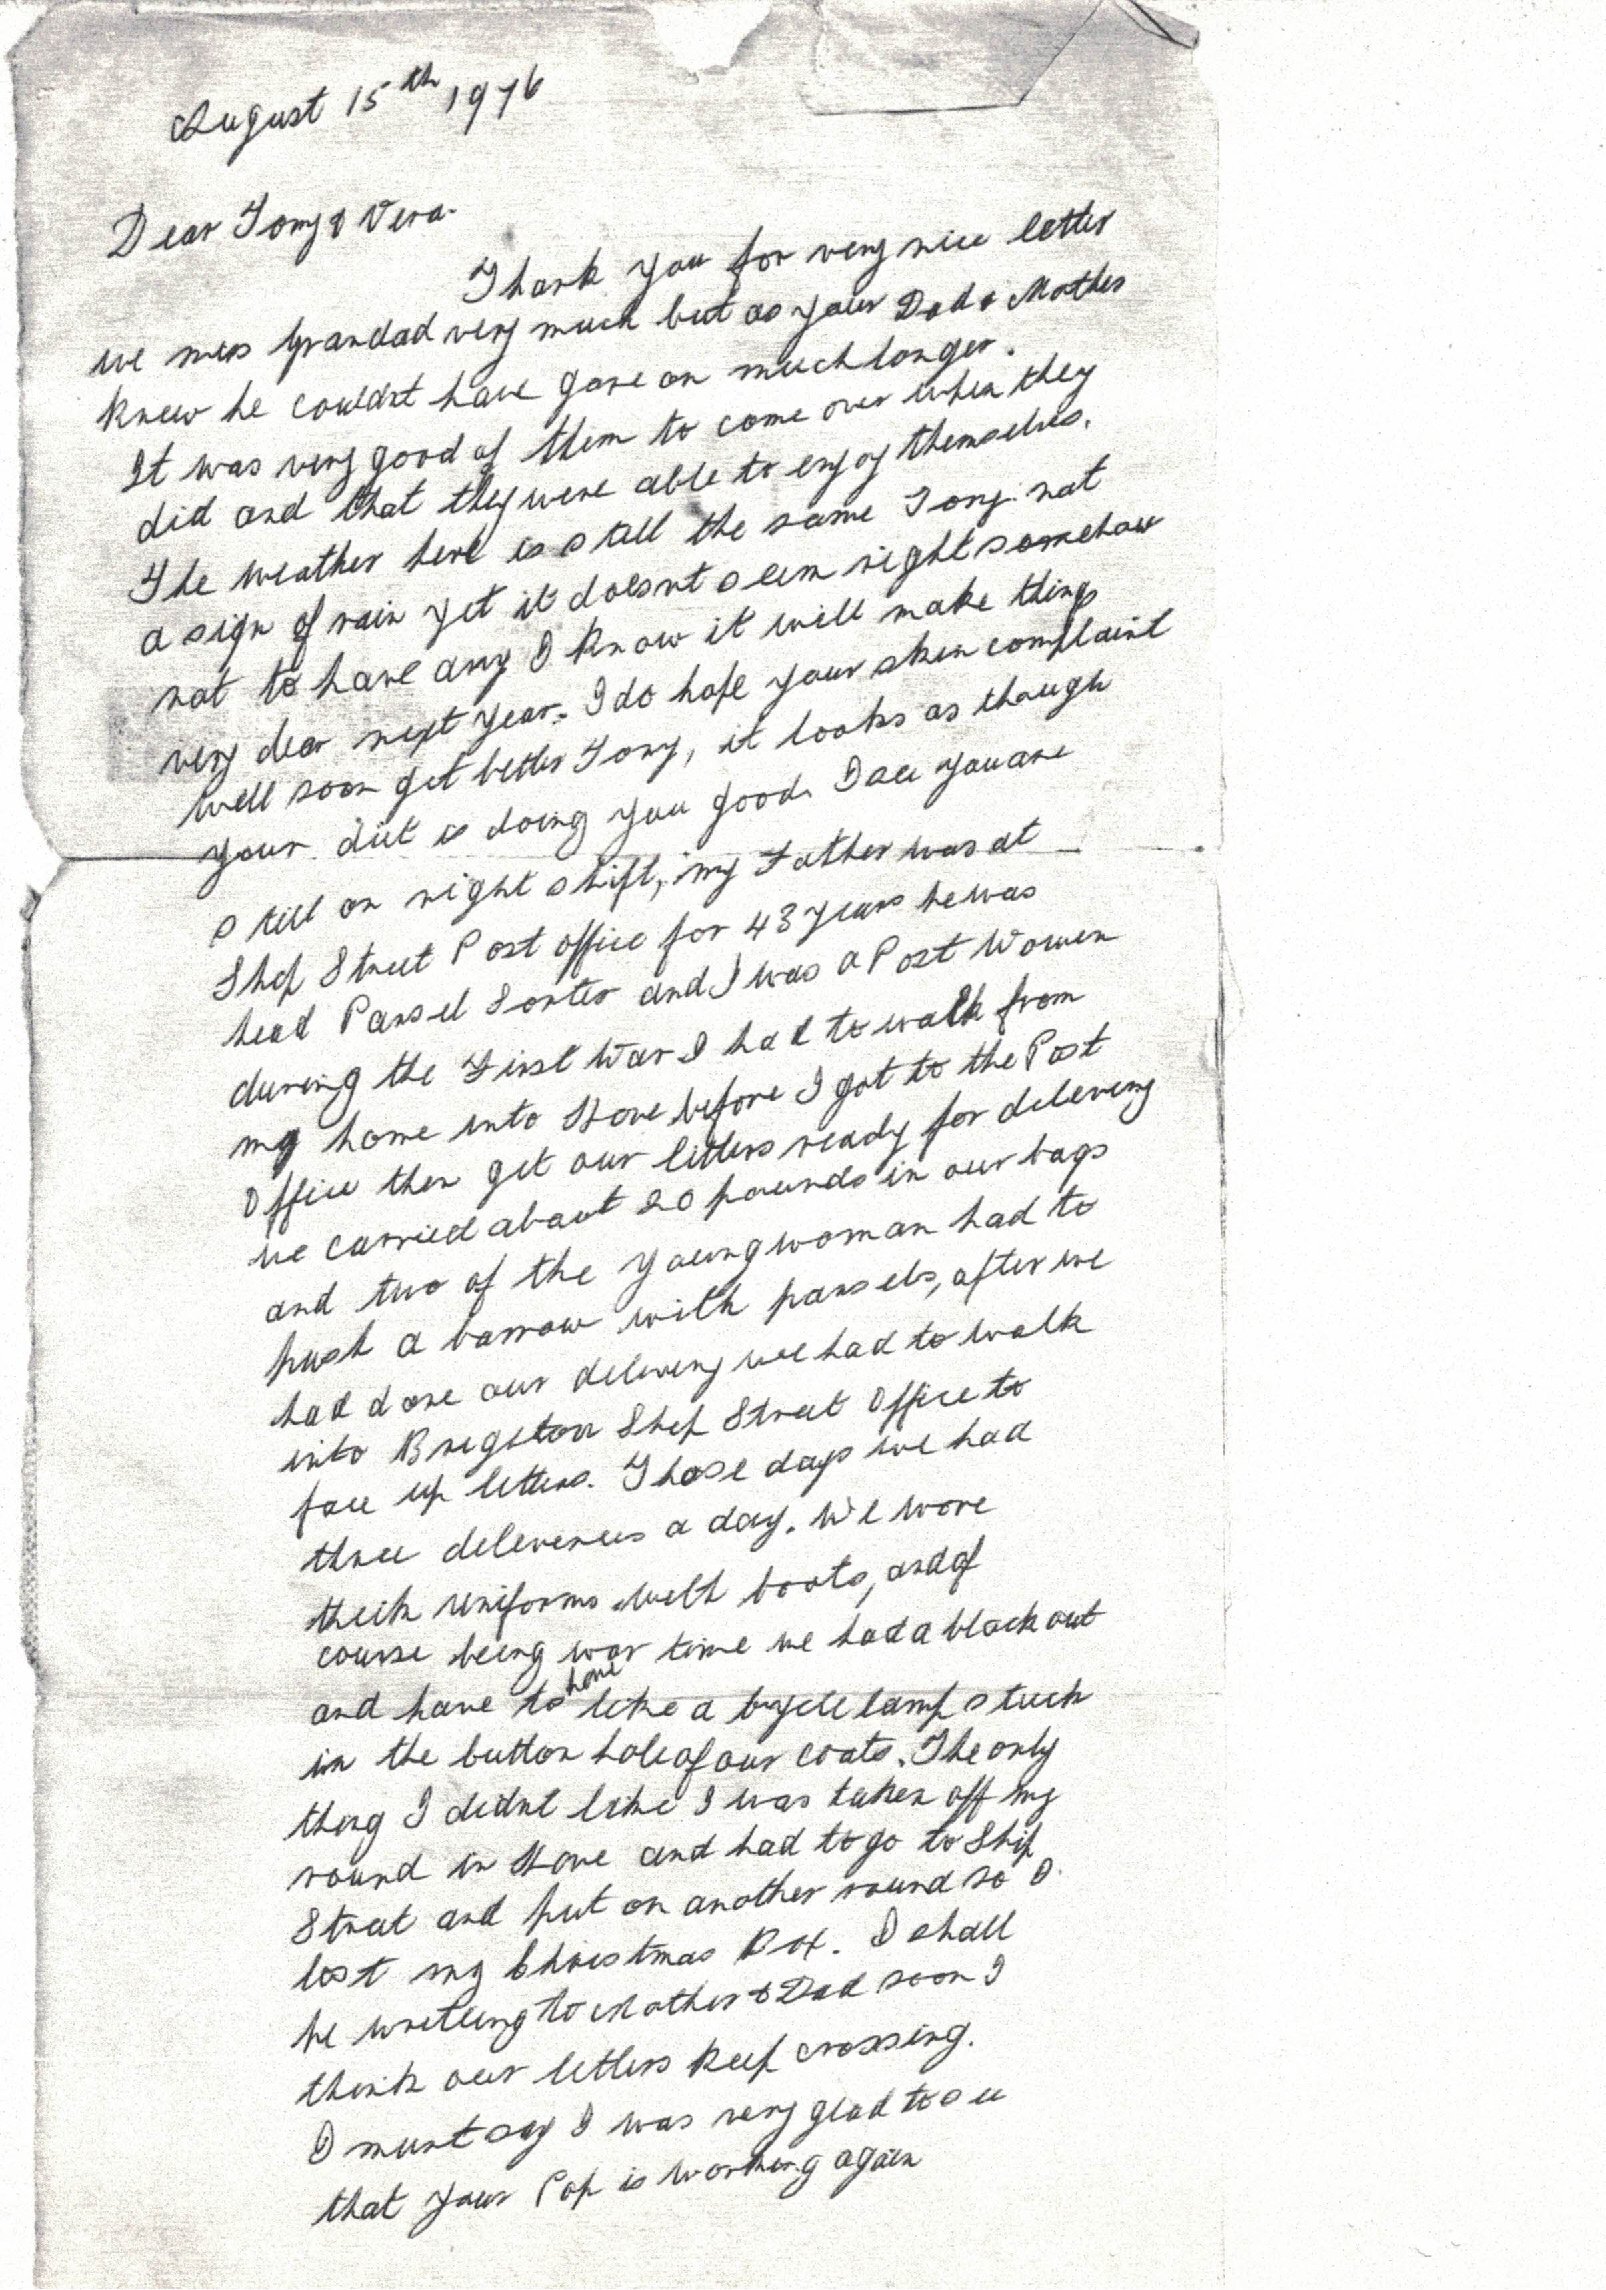 August 15th 1976
Dear Tony & Vera.
Thank you for very nice letter
we miss Grandad very much but as your Dad & Mother
knew he couldnt have gone on much longer.
It was very good of them to come over when they
did and that they were able to enjoy themselves.
The weather here is still the same Tony. not
a sign of rain yet it doesnt seem right somehow
not to have any I know it will make things
very dear next year. I do hope your skin complaint
will soon get better Tony, it looks as though
your diet is doing you good. I see you are
still on night shift, my Father was at
Ship Street Post office for 43 years he was
head Parsel Sorter and I was a Post Women
during the First War I had to walk from
my home into Hove before I got to the Post
Office then get our letters ready for delivering
we carried about 20 pounds in our bags
and two of the young woman had to
push a barrow with parsels, after we
had done our delivery we had to walk
into Brighton Ship Street Office to
face up letters. Those days we had
three deliveries a day. We wore
thick uniforms with boots, and of
course being war time we had a black out
and have to have like a bycile lamp stuck
in the button hole of our coats. The only
thing I didnt like I was taken off my
round in Hove and had to go to Ship
Street and put on another round so I
lost my Christmas Box. I shall
be writeing to Mother & Dad soon I
think our letters keep crossing.
I must say I was very glad to see
that your Pop is working again